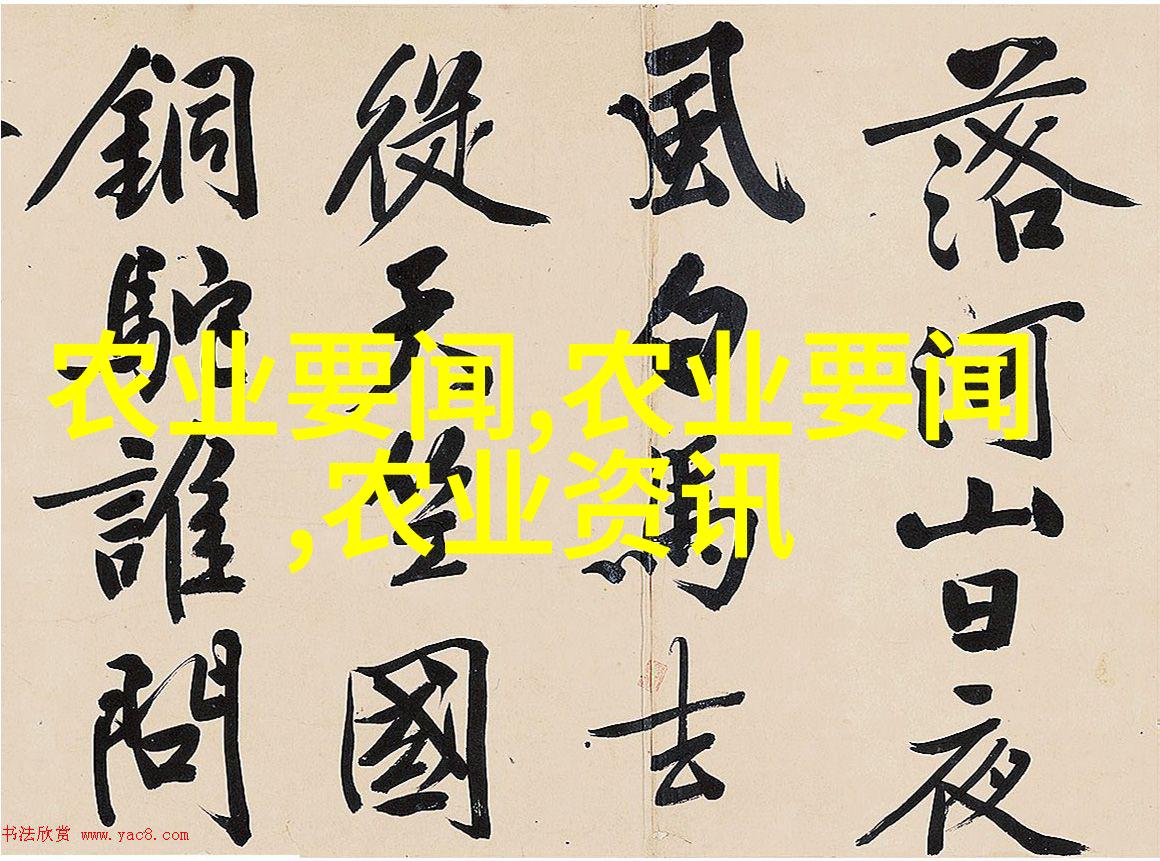 落河山日夜
風白馬去
從天竺國
銅駝誰問
农业要闻,农业要闻
,农业资讯
书法欣赏 www.yac8.com